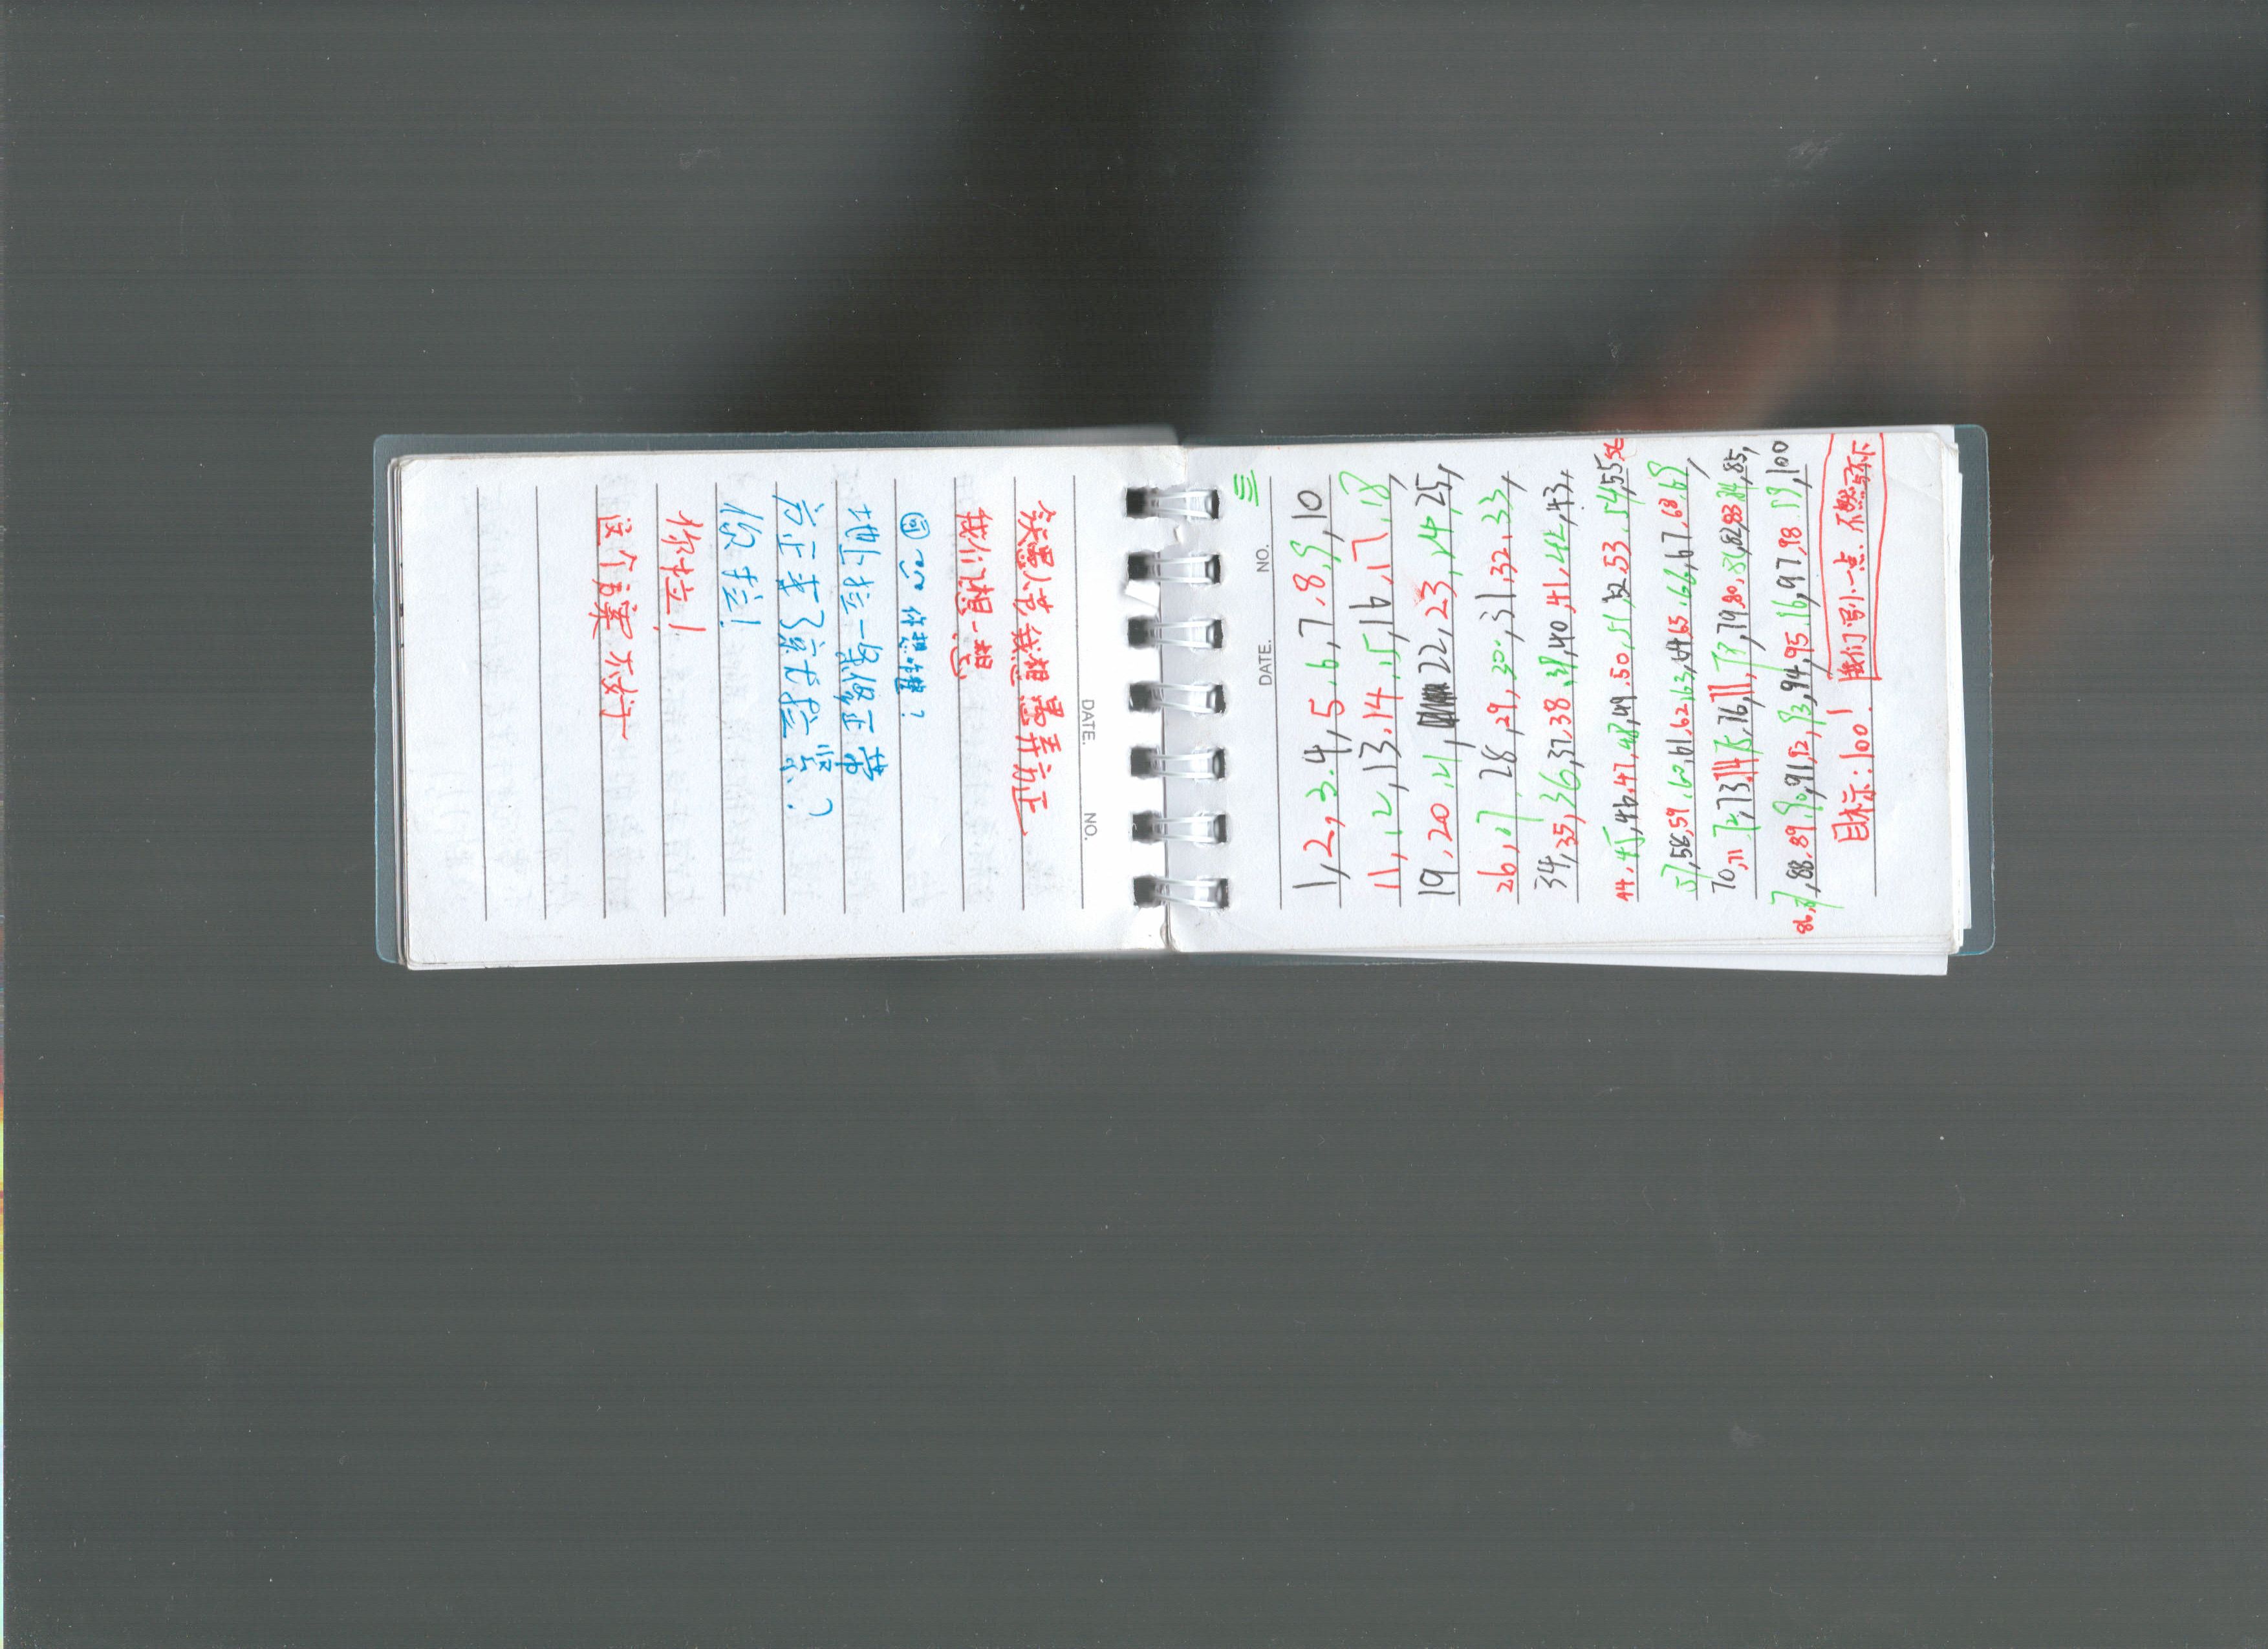 DATE. NO.
我们想一想
你拉!
你拉!
这个方案不好
DATE. NO.
三
1,2,3.4,5.6,7.8.9,10
11,12,13.14.15,16,17.18,
19,20.21,22,23,24.25,
26,27.28,29,30.31,32,33,
34,35,36,37,38.39,40,41,42,43,
44,45,46,47,48,49.50,51,52,53.54,55,56
57,58,59.60,61,62,63,64,65.66,67.68.69,
70,71,72,73,74,75,76,77,78,79,80,81,82,83,84,85,
86,87,88,89,90,91,92,93,94,95,96,97,98,99,100
目标:100!
我们写小一点.不然写不下